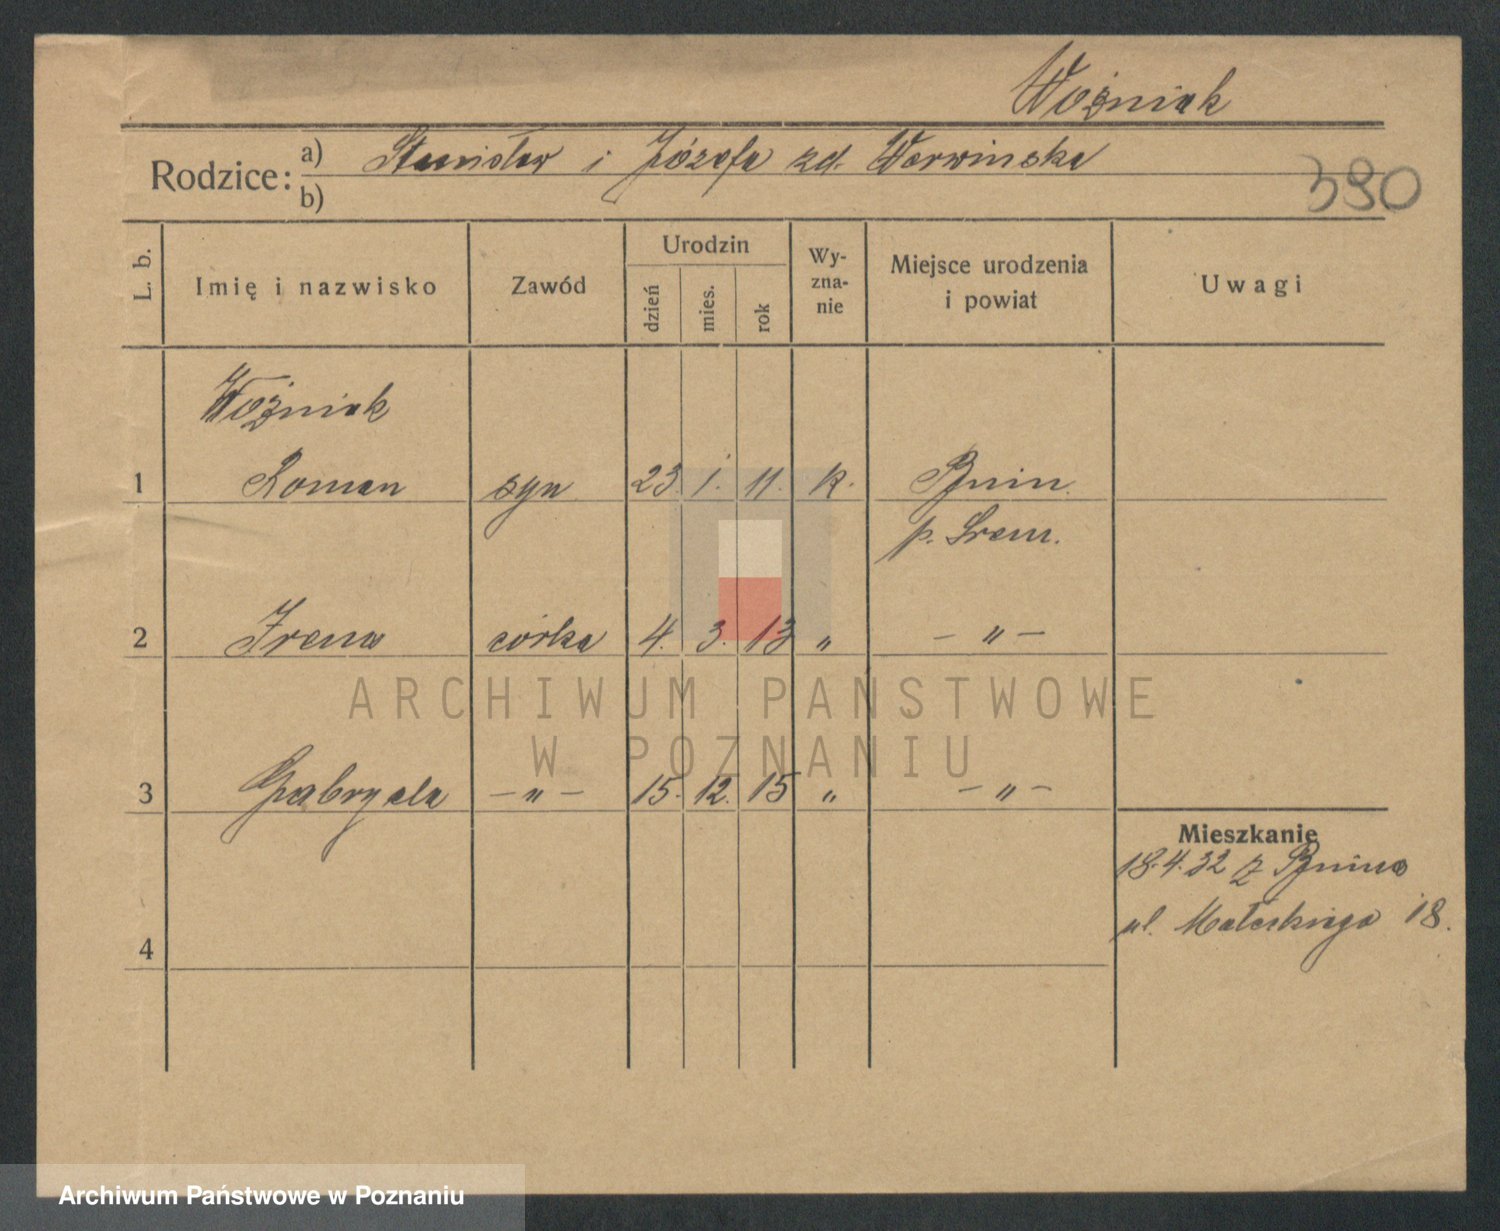 Woźniak
Rodzice: a) Stanisław i Józefa zd. Warwińska
b)
390
L. b. Imię i nazwisko Zawód Urodzin dzień mies. rok Wy-zna-nie Miejsce urodzenia i powiat Uwagi
Woźniak
1 Roman syn 23. 1. 11. k. Bnin.
p. Śrem.
2 Irena córka 4. 3. 13 " – " –
ARCHIWUM PAŃSTWOWE
W POZNANIU
3 Gabryela – " – 15. 12. 15 " – " –
Mieszkanie
18.4.32 z Bnina
ul. Małeckiego 18.
4
Archiwum Państwowe w Poznaniu